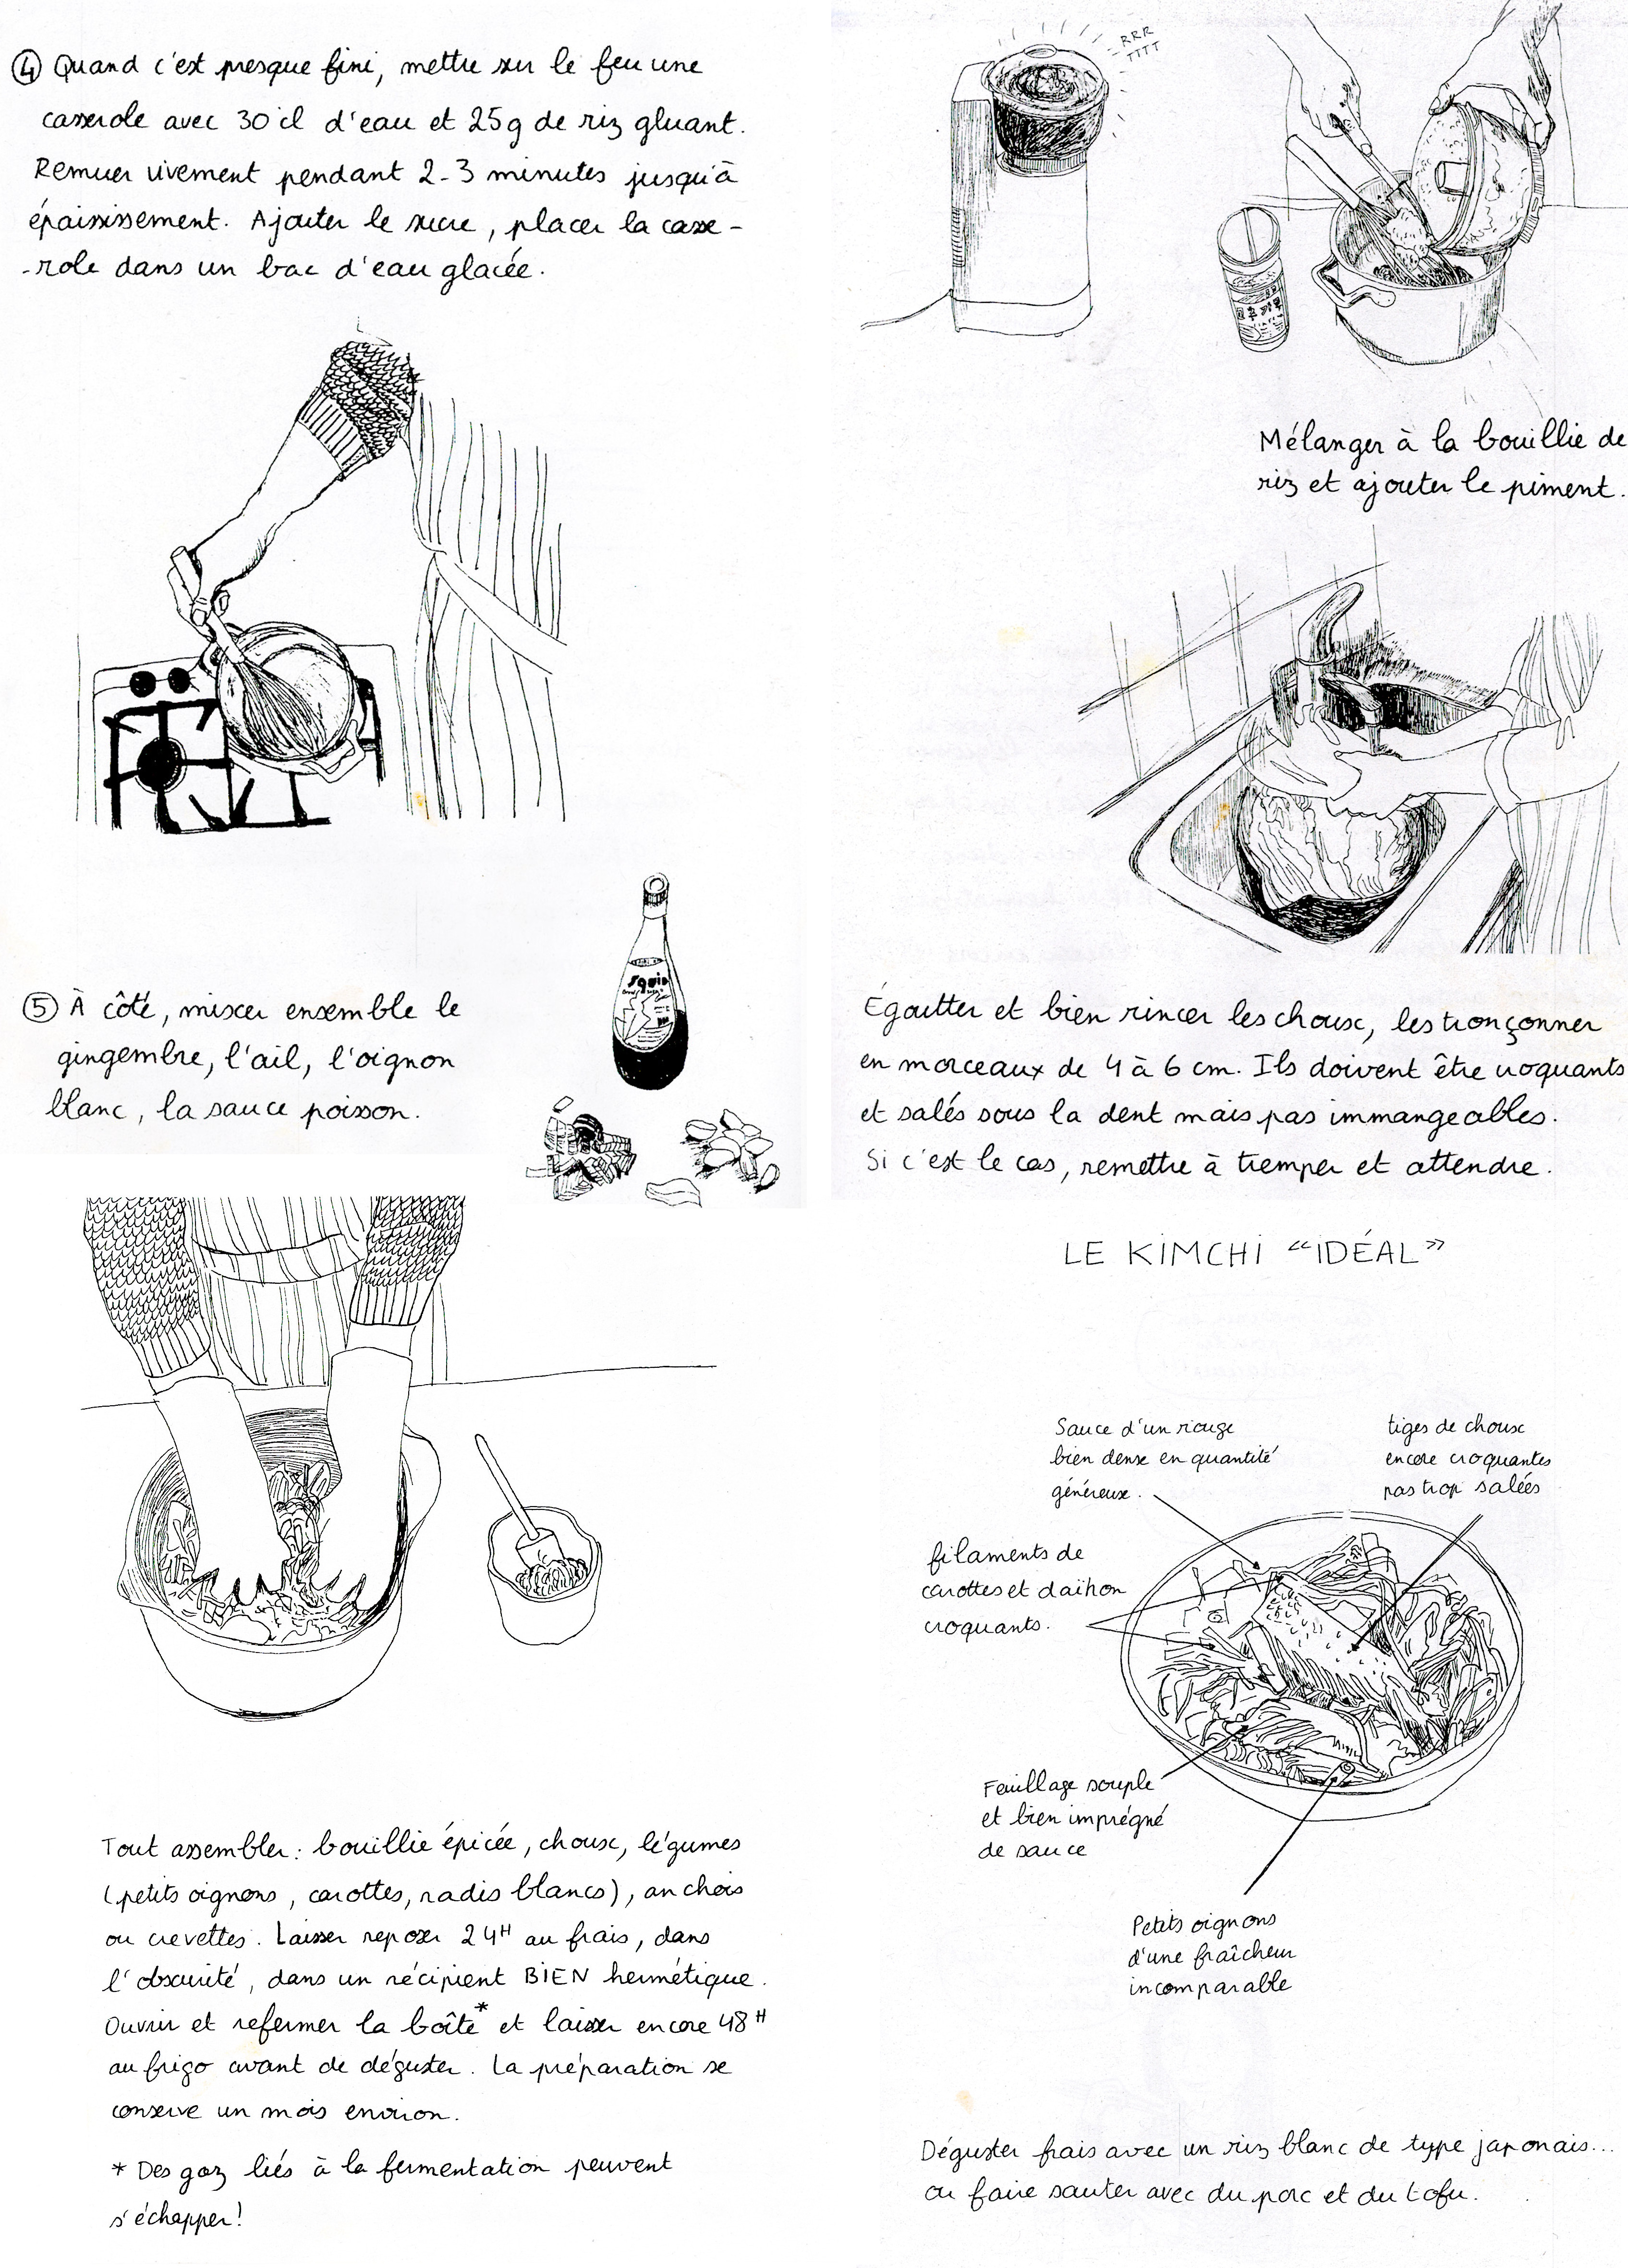 ④ Quand c'est presque fini, mettre sur le feu une
casserole avec 30 cl d'eau et 25g de riz gluant.
Remuer vivement pendant 2-3 minutes jusqu'à
épaississement. Ajouter le sucre, placer la casse-
-role dans un bac d'eau glacée.
RRR
TTTT
Mélanger à la bouillie de
riz et ajouter le piment.
squid
⑤ À côté, mixer ensemble le
gingembre, l'ail, l'oignon
blanc, la sauce poisson.
Égoutter et bien rincer les choux, les tronçonner
en morceaux de 4 à 6 cm. Ils doivent être croquants
et salés sous la dent mais pas immangeables.
Si c'est le cas, remettre à tremper et attendre.
LE KIMCHI "IDÉAL"
Sauce d'un rouge
bien dense en quantité
généreuse.
tiges de choux
encore croquantes
pas trop salées
filaments de
carottes et daïkon
croquants.
Feuillage souple
et bien imprégné
de sauce
Petits oignons
d'une fraîcheur
incomparable
Tout assembler : bouillie épicée, choux, légumes
(petits oignons, carottes, radis blancs), anchois
ou crevettes. Laisser reposer 24H au frais, dans
l'obscurité, dans un récipient BIEN hermétique.
Ouvrir et refermer la boîte* et laisser encore 48H
au frigo avant de déguster. La préparation se
conserve un mois environ.
* Des gaz liés à la fermentation peuvent
s'échapper!
Déguster frais avec un riz blanc de type japonais...
ou faire sauter avec du porc et du tofu.